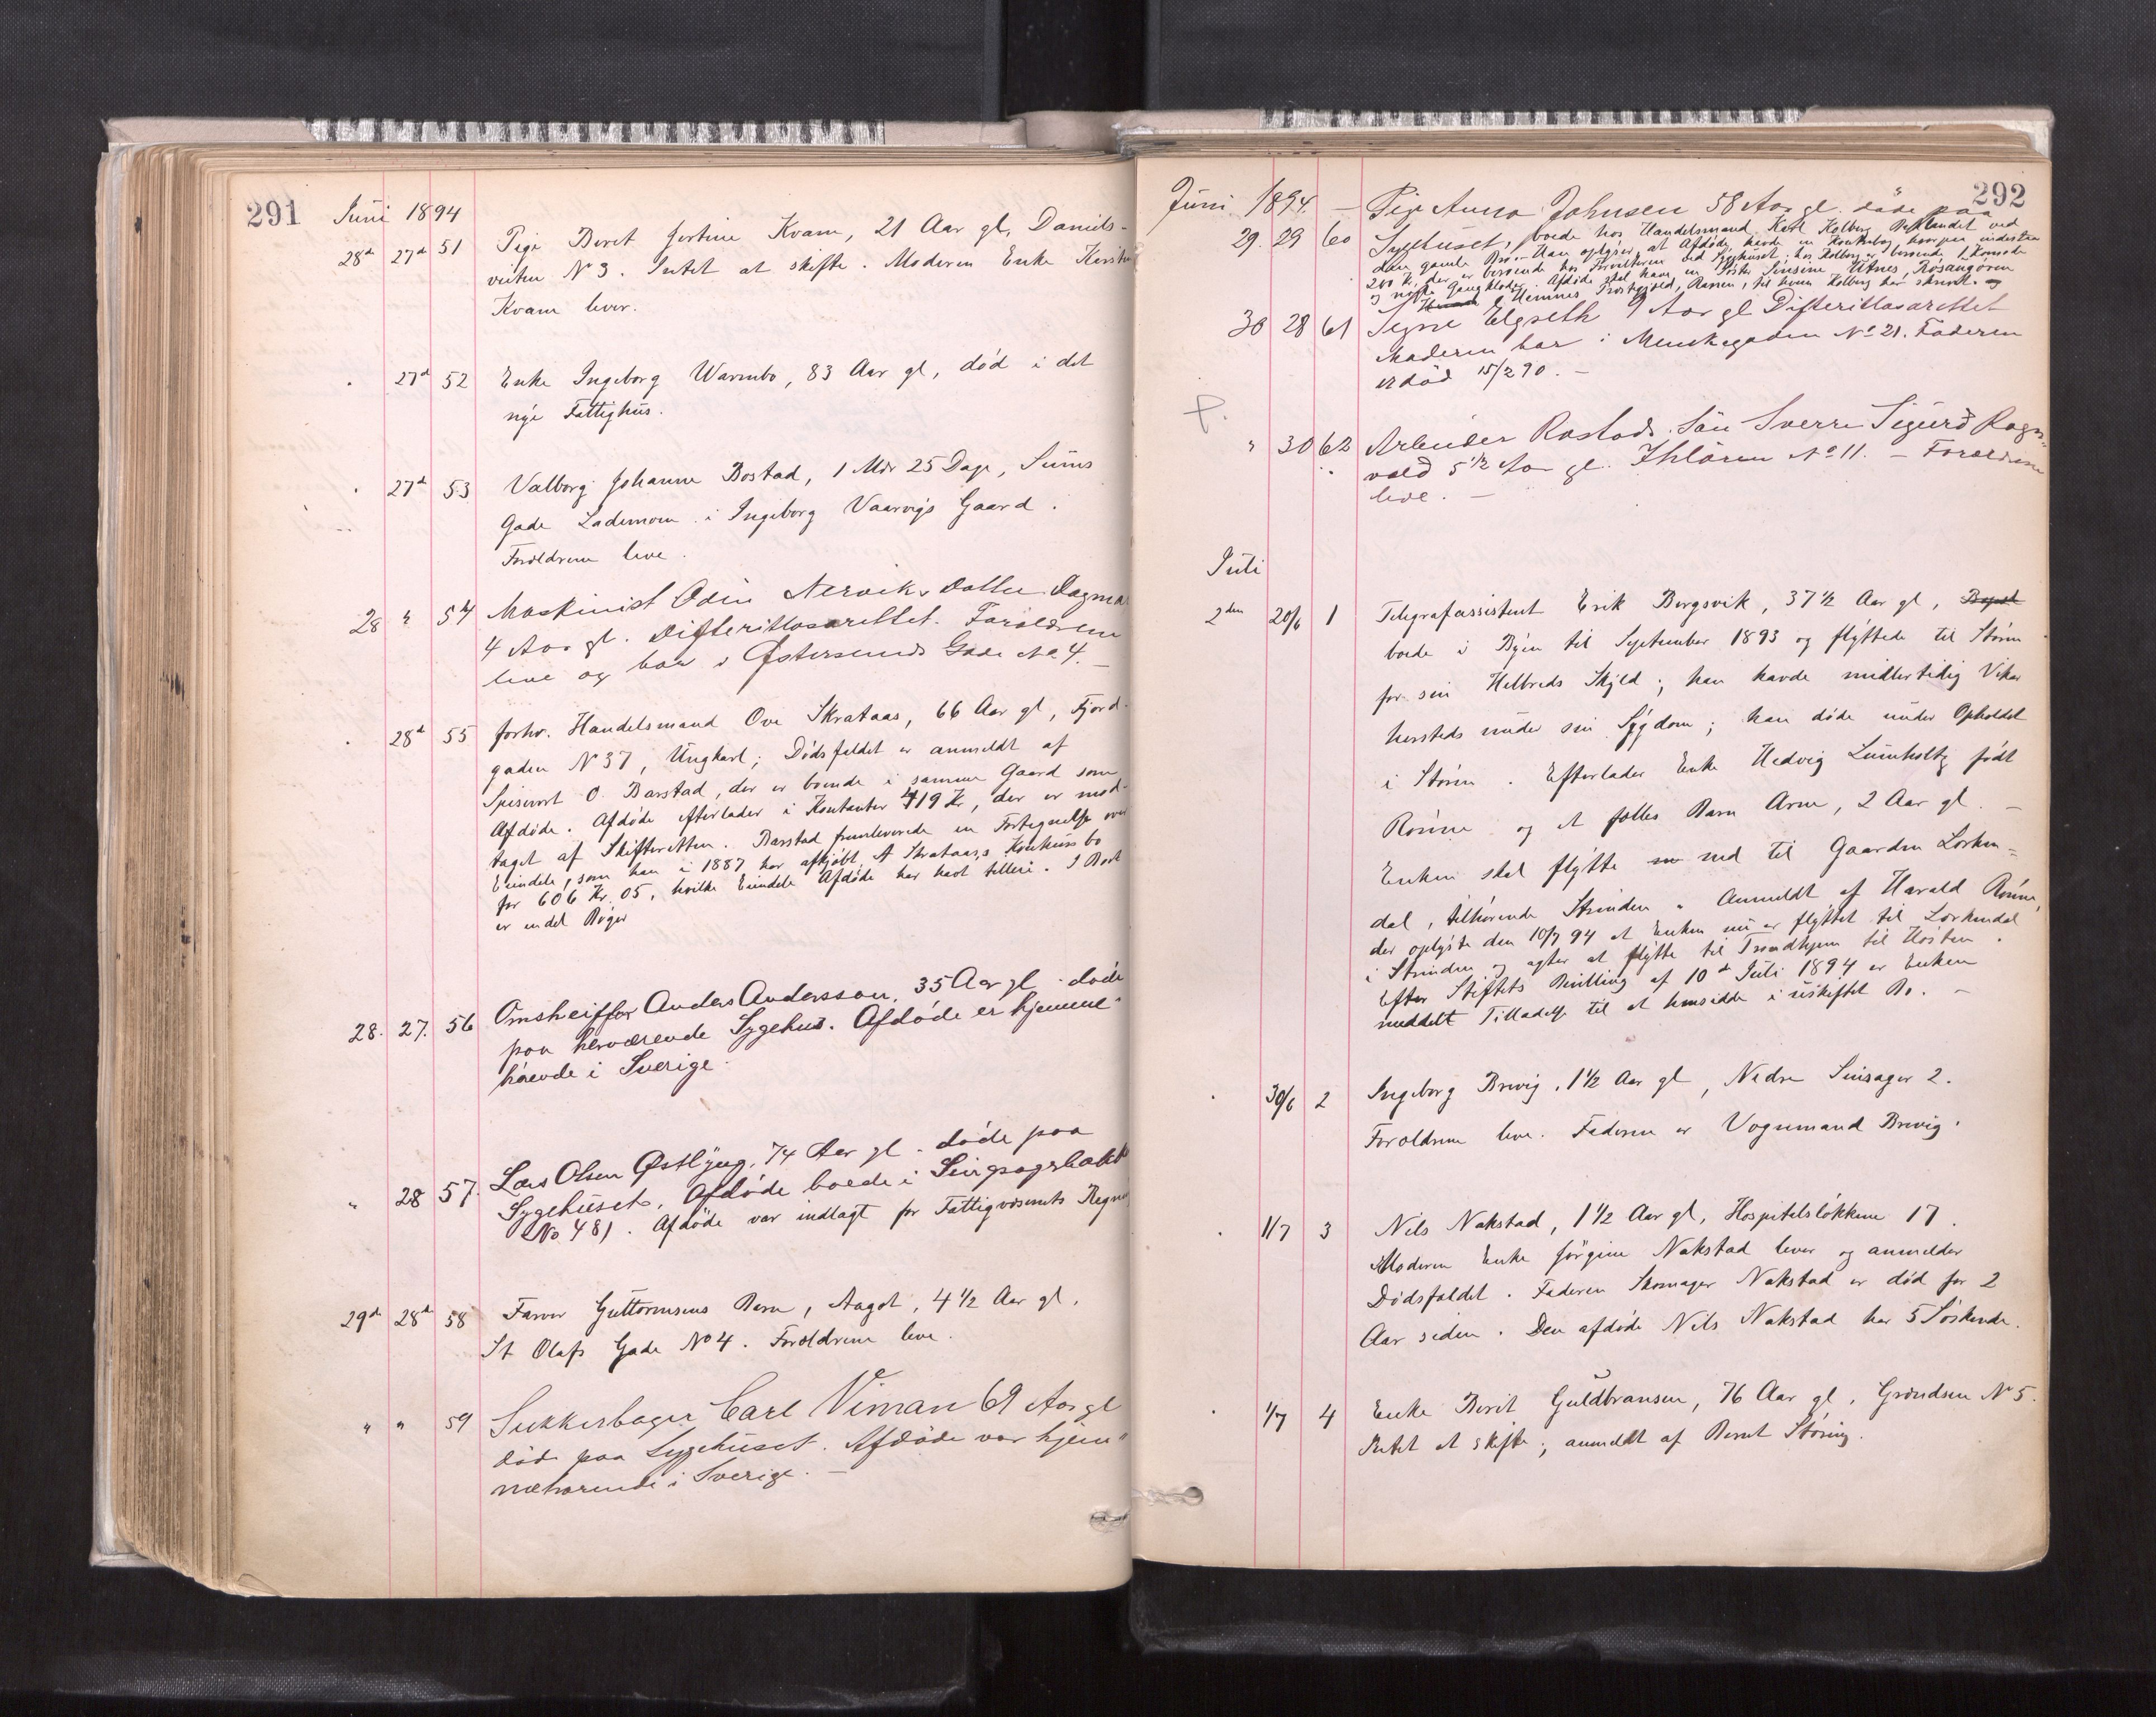 291
Juni 1894
28de 27de 51 Pige Beret Jertine Kvam, 21 Aar gl, Daniels-
veiten No 3. Intet at skifte. Moderen Enke
Kvam lever.
. 27de 52 Enke Ingeborg Warmbo, 83 Aar gl, död i det
nye Fattighus.
. 27de 53 Valborg Johanne Bostad, 1 Mdr 25 Dage,
Gade Lademoen i Ingeborg Vaarvigs Gaard.
Forældrene leve.
28 " 54 Maskinist Odin Nerviks Datter Dagmar
4 Aar gl. Difterittlasarettet. Forældrene
leve og bor i Østersunds Gade No 4. —
. 28de 55 forhv. Handelsmand Ove Skrataas, 66 Aar gl, Fjord-
gaden No 37, Ungkarl; Dödsfaldet er anmeldt af
Spisevert O. Barstad, der er boende i samme Gaard som
Afdöde. Afdöde efterlader i Kontanter 419 Kr, der er mod-
taget af Skifteretten. Barstad fremleverede en Fortegnelse over
Eiendele, som han i 1887 har afkjöbt A Skrataas,s Konkursbo
for 606 Kr. 05, hvilke Eiendele Afdöde har havt tilleie. I Boet
er endel Böger
28. 27. 56 Omsheiffor Anders Andersson, 35 Aar gl. döde
paa herværende Sygehus. Afdöde er hjemme-
hörende i Sverige.
" 28 57. Lars Olsen Østlyng, 74 Aar gl. döde paa
Sygehuset. Afdöde boede i
No 481. Afdöde var indlagt for Fattigvæsenets
29de 28de 58 Farver Guttormsens Barn, Aagot, 4 1/2 Aar gl,
St Olafs Gade No 4. Forældrene leve.
" " 59 Sukkerbager Carl Viman 69 Aar gl
döde paa Sygehuset. Afdöde var hjem-
mehörende i Sverige. —
292
Juni 1894. — Pige Anna Johnsen 58 Aar gl. döde paa
29. 29 60 Sygehuset, boede hos Handelsmand Karl Kolberg Baklandet ved
den gamle Bro. Han oplyser, at Afdöde havde en Kontrabog, hvorpaa indestaar
200 Kr, der er beroende hos Forvalteren ved Sygehuset; hos Kolberg er beroende 1 Komode
og nogle Gangklæder. Afdöde skal have en Söster Utnes,
i Hemnes Præstegjeld, Ranen, til hvem Kolberg har skrevet.
30 28 61 Signe Elgseth 9 Aar gl Difterittlasarettet
Moderen bor i Munkegaden No 21. Faderen
er död 15/2 90. —
" 30 62 Arbeider Rostads Sön Sverre Sigurd Ragn-
vald 5 1/2 Aar gl. Ihlören No 11. — Forældrene
leve. —
Juli
2den 20/6 1 Telegrafassistent Erik Bergsvik, 37 1/2 Aar gl,
boede i Byen til September 1893 og flyttede til Stören
for sin Helbreds Skyld; han havde midlertidig Vikar
hersteds under sin Sygdom; han döde under Opholdet
i Stören. Efterlader Enke Hedvig Lumholtz födt
Rönne og et fælles Barn Arne, 2 Aar gl. —
Enken skal flytte ned til Gaarden Lerken-
dal, tilhörende Strinden. Anmeldt af Harald Rönne,
der oplyste den 10/7 94 at Enken nu er flyttet til Lerkendal
i Strinden og agter at flytte til Trondhjem til Hösten.
Efter Stiftets Bevilling af 10de Juli 1894 er Enken
meddelt Tilladelse til at hensidde i uskiftet Bo. —
. 30/6 2 Ingeborg Brevig, 1 1/2 Aar gl, Nedre Singsager 2.
Forældrene leve. Faderen er Vognmand Brevig.
. 1/7 3 Nils Nakstad, 1 1/2 Aar gl, Hospitalslökkene 17.
Moderen Enke Jörgine Nakstad lever og anmelder
Dödsfaldet. Faderen Skomager Nakstad er död for 2
Aar siden. Den afdöde Nils Nakstad har 5 Söskende.
. 1/7 4 Enke Berit Guldbransen, 76 Aar gl, Grændsen No 5.
Intet at skifte; anmeldt af Bernt Störing.